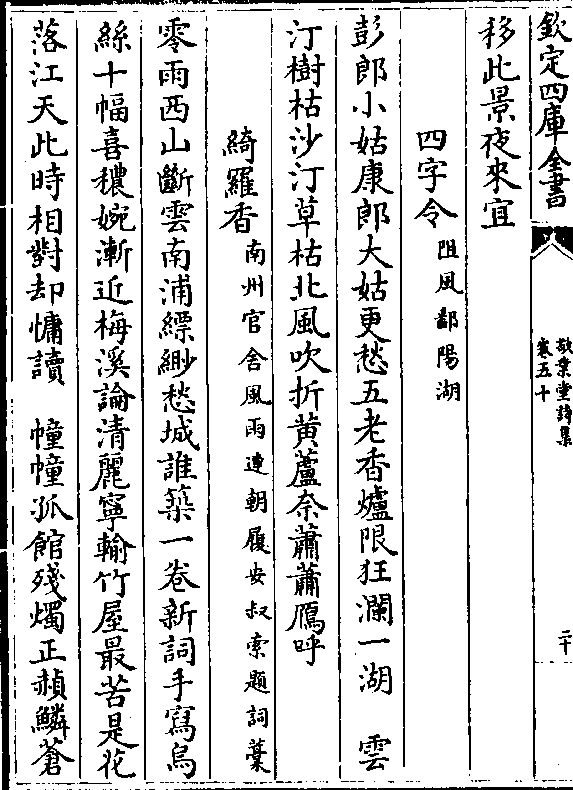 欽定四庫全書
敬業堂詩集
卷五十
二十
移此景夜來宜
四字令 阻風鄱陽湖
彭郎小姑康郎大姑更愁五老香爐限狂瀾一湖　雲
汀樹枯沙汀草枯北風吹折黄蘆奈蕭蕭鴈呼
綺羅香 南州官舍風雨連朝履安叔索題詞藁
零雨西山斷雲南浦縹緲愁城誰築一卷新詞手寫烏
絲十幅喜穠婉漸近梅溪論清麗寧輸竹屋最苦是花
落江天此時相對却慵讀　幢幢孤館殘燭正赬鱗蒼